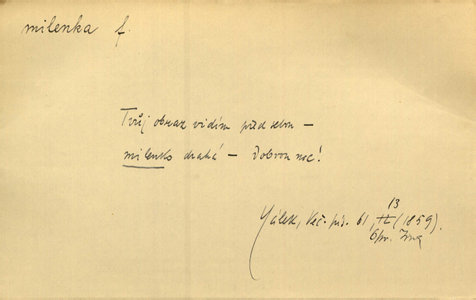 milenka f.
Tvůj obraz vidím před sebou –
milenko drahá – Dobrou noc!
Hálek, Več. pís. 61, (1859).
13